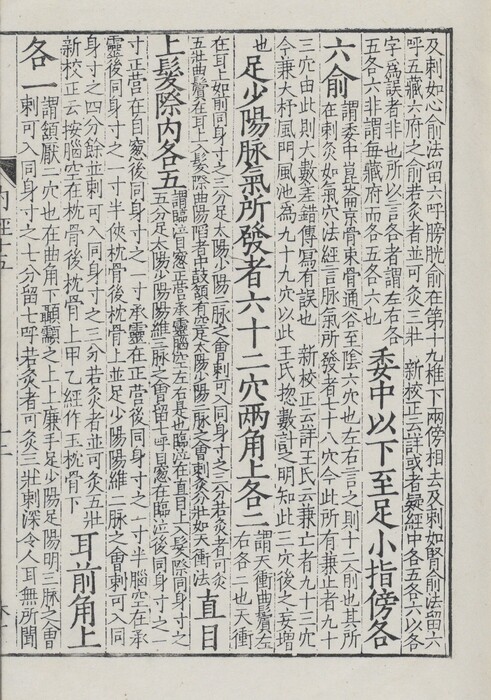 及刺如心俞法留六呼膀胱俞在第十九椎下兩傍相去及刺如腎俞法留六
呼五藏六府之俞若灸者並可灸三壯 新校正云詳或者疑經中各五各六以各
字為誤者非也所以言各者謂左右各
五各六非謂每藏府而各五各六也
委中以下至足小指傍各
六俞
謂委中崑崙京骨束骨通谷至陰六穴也左右言之則十二俞也其所
在刺灸如氣穴法經言脉氣所發者七十八穴今此所有兼亡者九十
三穴由此則大數差錯傳寫有誤也 新校正云詳王氏云兼亡者九十三穴
今兼大杼風門風池為九十九穴以此王氏揔數計之明知此三穴後之妄增
也
足少陽脉氣所發者六十二穴兩角上各二
謂天衝曲鬢左
右各二也天衝
在耳上如前同身寸之三分足太陽少陽二脉之會刺可入同身寸之三分若灸者可灸
五壯曲鬢在耳上入髮際曲隅陷者中鼓頷有空足太陽少陽二脉之會刺灸分壯如天衝法
直目
上髮際内各五
謂臨泣目窻正營承靈腦空左右是也臨泣在直目上入髮際同身寸之
五分足太陽少陽陽維三脉之會留七呼目窻在臨泣後同身寸之一
寸正營在目窻後同身寸之一寸承靈在正營後同身寸之一寸半腦空在承
靈後同身寸之一寸半俠枕骨後枕骨上並足少陽陽維二脉之會刺可入同
身寸之四分餘並刺可入同身寸之三分若灸者並可灸五壯
新校正云按腦空在枕骨後枕骨上甲乙經作玉枕骨下
耳前角上
各一
謂頷厭二穴也在曲角下顳顬之上上廉手足少陽足陽明三脉之會
刺可入同身寸之七分留七呼若灸者可灸三壯刺深令人耳無所聞